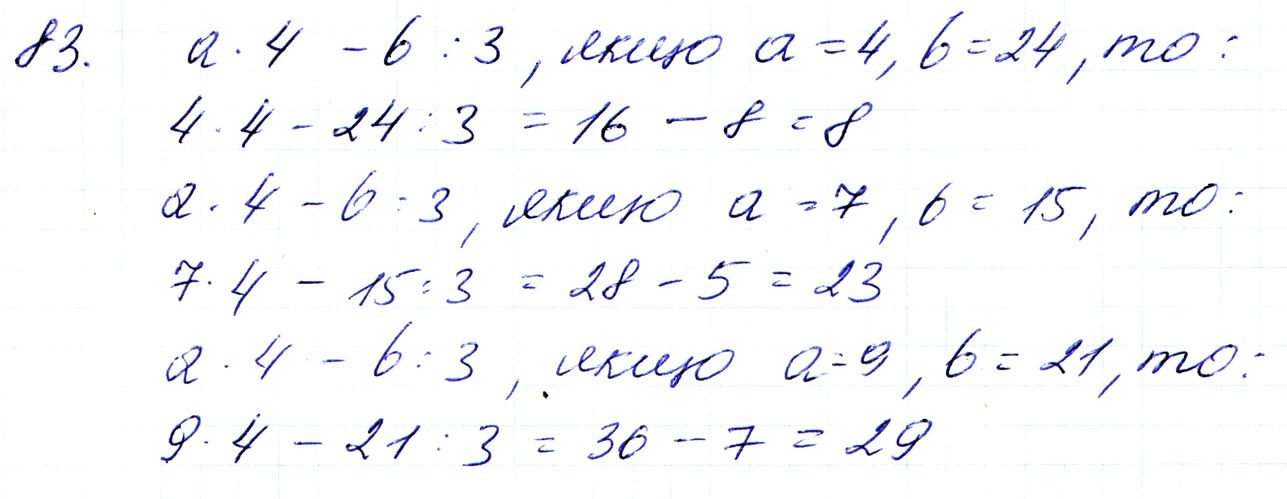 83. a · 4 - b : 3, якщо a = 4, b = 24, то:
4 · 4 - 24 : 3 = 16 - 8 = 8
a · 4 - b : 3, якщо a = 7, b = 15, то:
7 · 4 - 15 : 3 = 28 - 5 = 23
a · 4 - b : 3, якщо a = 9, b = 21, то:
9 · 4 - 21 : 3 = 36 - 7 = 29